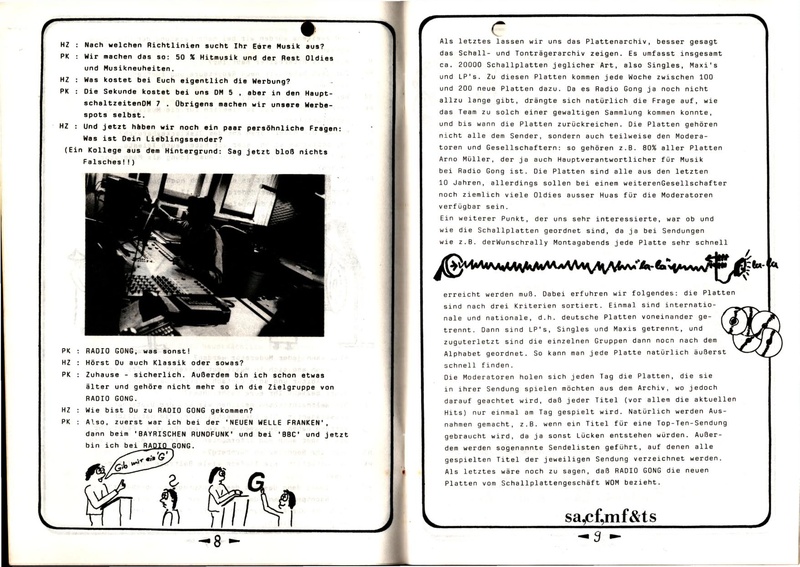 HZ : Nach welchen Richtlinien sucht Ihr Eure Musik aus?
PK : Wir machen das so: 50 % Hitmusik und der Rest Oldies
und Musikneuheiten.
HZ : Was kostet bei Euch eigentlich die Werbung?
PK : Die Sekunde kostet bei uns DM 5 , aber in den Haupt-
schaltzeitenDM 7 . Übrigens machen wir unsere Werbe-
spots selbst.
HZ : Und jetzt haben wir noch ein paar persöhnliche Fragen:
Was ist Dein Lieblingssender?
(Ein Kollege aus dem Hintergrund: Sag jetzt bloß nichts
Falsches!!)
PK : RADIO GONG, was sonst!
HZ : Hörst Du auch Klassik oder sowas?
PK : Zuhause - sicherlich. Außerdem bin ich schon etwas
älter und gehöre nicht mehr so in die Zielgruppe von
RADIO GONG.
HZ : Wie bist Du zu RADIO GONG gekommen?
PK : Also, zuerst war ich bei der 'NEUEN WELLE FRANKEN',
dann beim 'BAYRISCHEN RUNDFUNK' und bei 'BBC' und jetzt
bin ich bei RADIO GONG.
Gib mir ein 'G'
?
G
8
Als letztes lassen wir uns das Plattenarchiv, besser gesagt
das Schall- und Tonträgerarchiv zeigen. Es umfasst insgesamt
ca. 20000 Schallplatten jeglicher Art, also Singles, Maxi's
und LP's. Zu diesen Platten kommen jede Woche zwischen 100
und 200 neue Platten dazu. Da es Radio Gong ja noch nicht
allzu lange gibt, drängte sich natürlich die Frage auf, wie
das Team zu solch einer gewaltigen Sammlung kommen konnte,
und bis wann die Platten zurückreichen. Die Platten gehören
nicht alle dem Sender, sondern auch teilweise den Modera-
toren und Gesellschaftern: so gehören z.B. 80% aller Platten
Arno Müller, der ja auch Hauptverantwortlicher für Musik
bei Radio Gong ist. Die Platten sind alle aus den letzten
10 Jahren, allerdings sollen bei einem weiterenGesellschafter
noch ziemlich viele Oldies ausser Huas für die Moderatoren
verfügbar sein.
Ein weiterer Punkt, der uns sehr interessierte, war ob und
wie die Schallplatten geordnet sind, da ja bei Sendungen
wie z.B. derWunschrally Montagabends jede Platte sehr schnell
la-la
erreicht werden muß. Dabei erfuhren wir folgendes: die Platten
sind nach drei Kriterien sortiert. Einmal sind internatio-
nale und nationale, d.h. deutsche Platten voneinander ge-
trennt. Dann sind LP's, Singles und Maxis getrennt, und
zuguterletzt sind die einzelnen Gruppen dann noch nach dem
Alphabet geordnet. So kann man jede Platte natürlich äußerst
schnell finden.
Die Moderatoren holen sich jeden Tag die Platten, die sie
in ihrer Sendung spielen möchten aus dem Archiv, wo jedoch
darauf geachtet wird, daß jeder Titel (vor allem die aktuellen
Hits) nur einmal am Tag gespielt wird. Natürlich werden Aus-
nahmen gemacht, z.B. wenn ein Titel für eine Top-Ten-Sendung
gebraucht wird, da ja sonst Lücken entstehen würden. Außer-
dem werden sogenannte Sendelisten geführt, auf denen alle
gespielten Titel der jeweiligen Sendung verzeichnet werden.
Als letztes wäre noch zu sagen, daß RADIO GONG die neuen
Platten vom Schallplattengeschäft WOM bezieht.
sa,cf,mf&ts
9